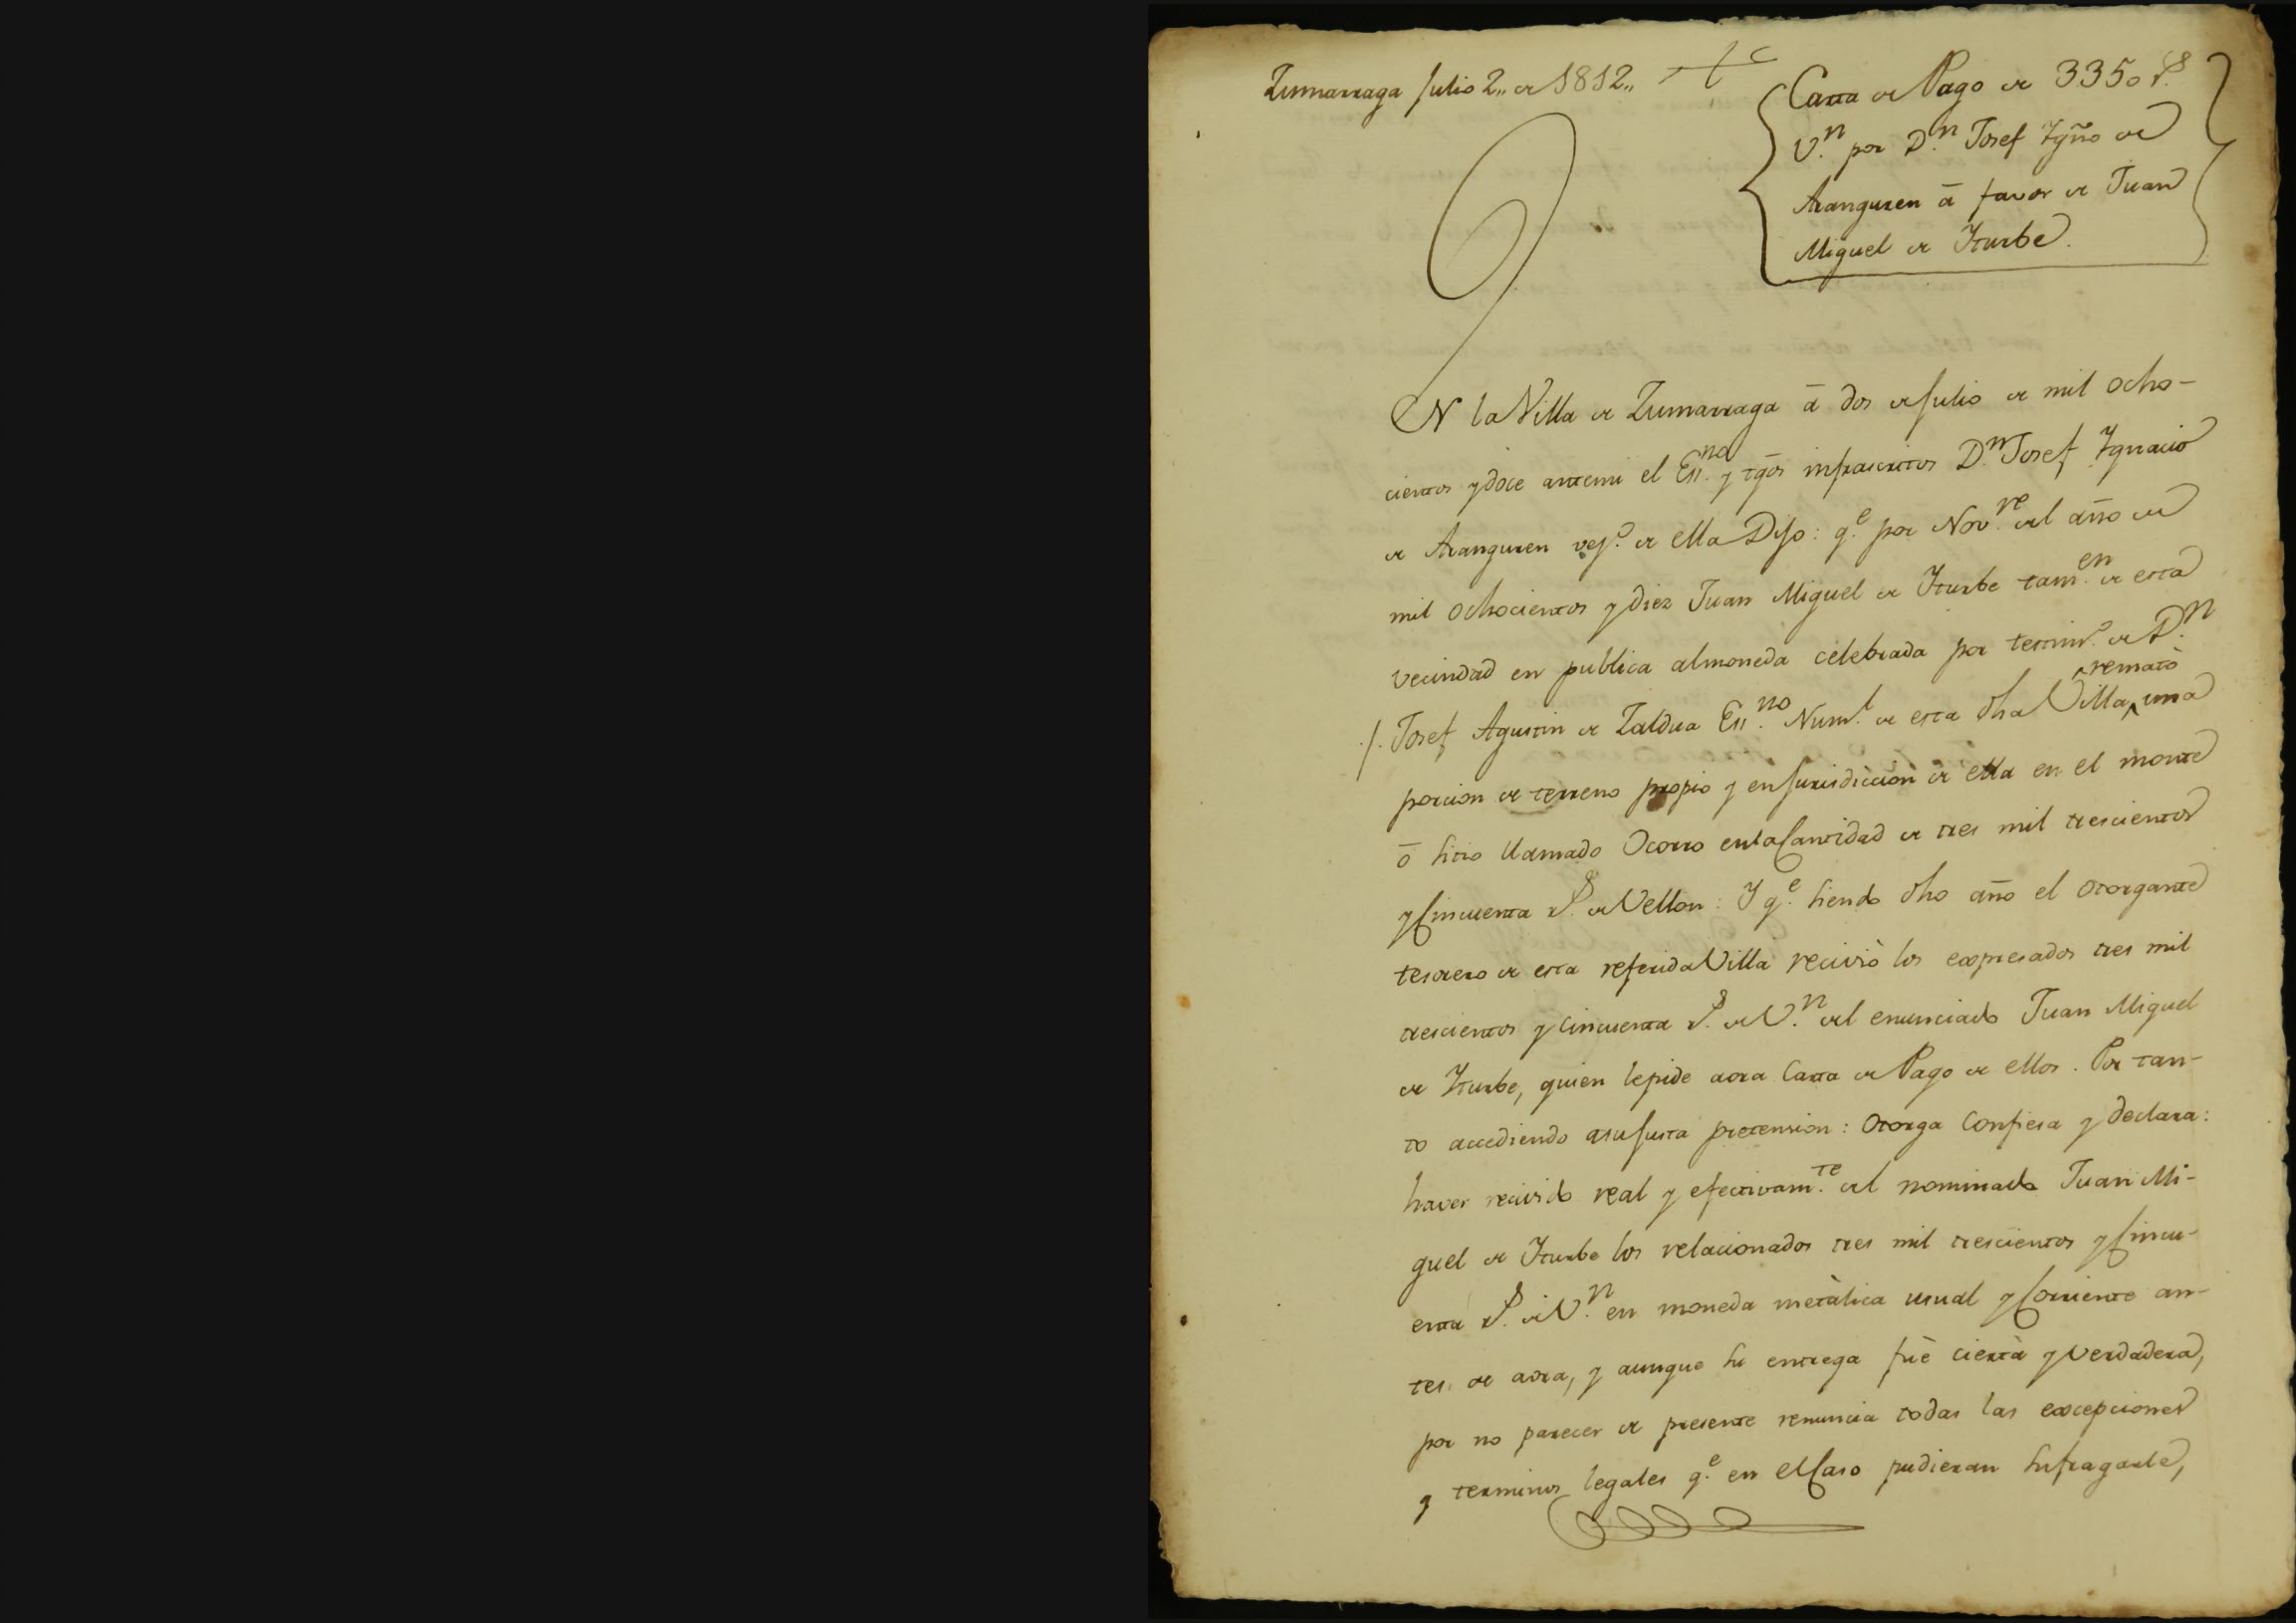 Zumarraga Julio 2,, de 1812,,
Carta de Pago de 3350 r.s
V.n por D.n Josef Ygño de
Aranguren â favor de Juan
Miguel de Yturbe.
EN la Villa de Zumarraga â dos de Julio de mil ocho-
cientos y doce antemi el Ess.no y tgôs infrascritos D.n Josef Ygnacio
de Aranguren vez.o de ella Dijo: q.e por Nov.re del año de
mil ochocientos y diez Juan Miguel de Yturbe tam.en de esta
vecindad en publica almoneda celebrada por testim.o de D.n
rematò
./. Josef Agustin de Zaldua Ess.no Num.l de esta dha Villa, una
porcion de terreno propio y en Jurisdiccion de ella en el monte
ô sitio llamado Ocorro enla Cantidad de tres mil trescientos
y Cincuenta r.s de Vellon: Y q.e siendo dho año el otorgante
tesorero de esta referida Villa reciviò los expresados tres mil
trescientos y Cincuenta r.s de V.n del enunciado Juan Miguel
de Yturbe, quien lepide aora Carta de Pago de ellos. Por tan-
to accediendo asu Justa pretension: Otorga Confiesa y declara:
haver recivido real y efectivam.te del nominado Juan Mi-
guel de Yturbe los relacionados tres mil trescientos y Cincu-
enta r.s de V.n en moneda metàlica usual y Corriente an-
tes de aora, y aunque su entrega fuè cierta y verdadera,
por no parecer de presente renuncia todas las excepciones
y terminos legales q.e en el Caso pudieran sufragarle,